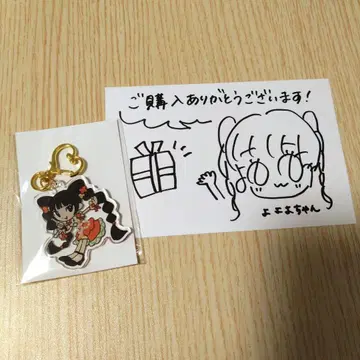 ご購入ありがとうございます!
よよよちゃん